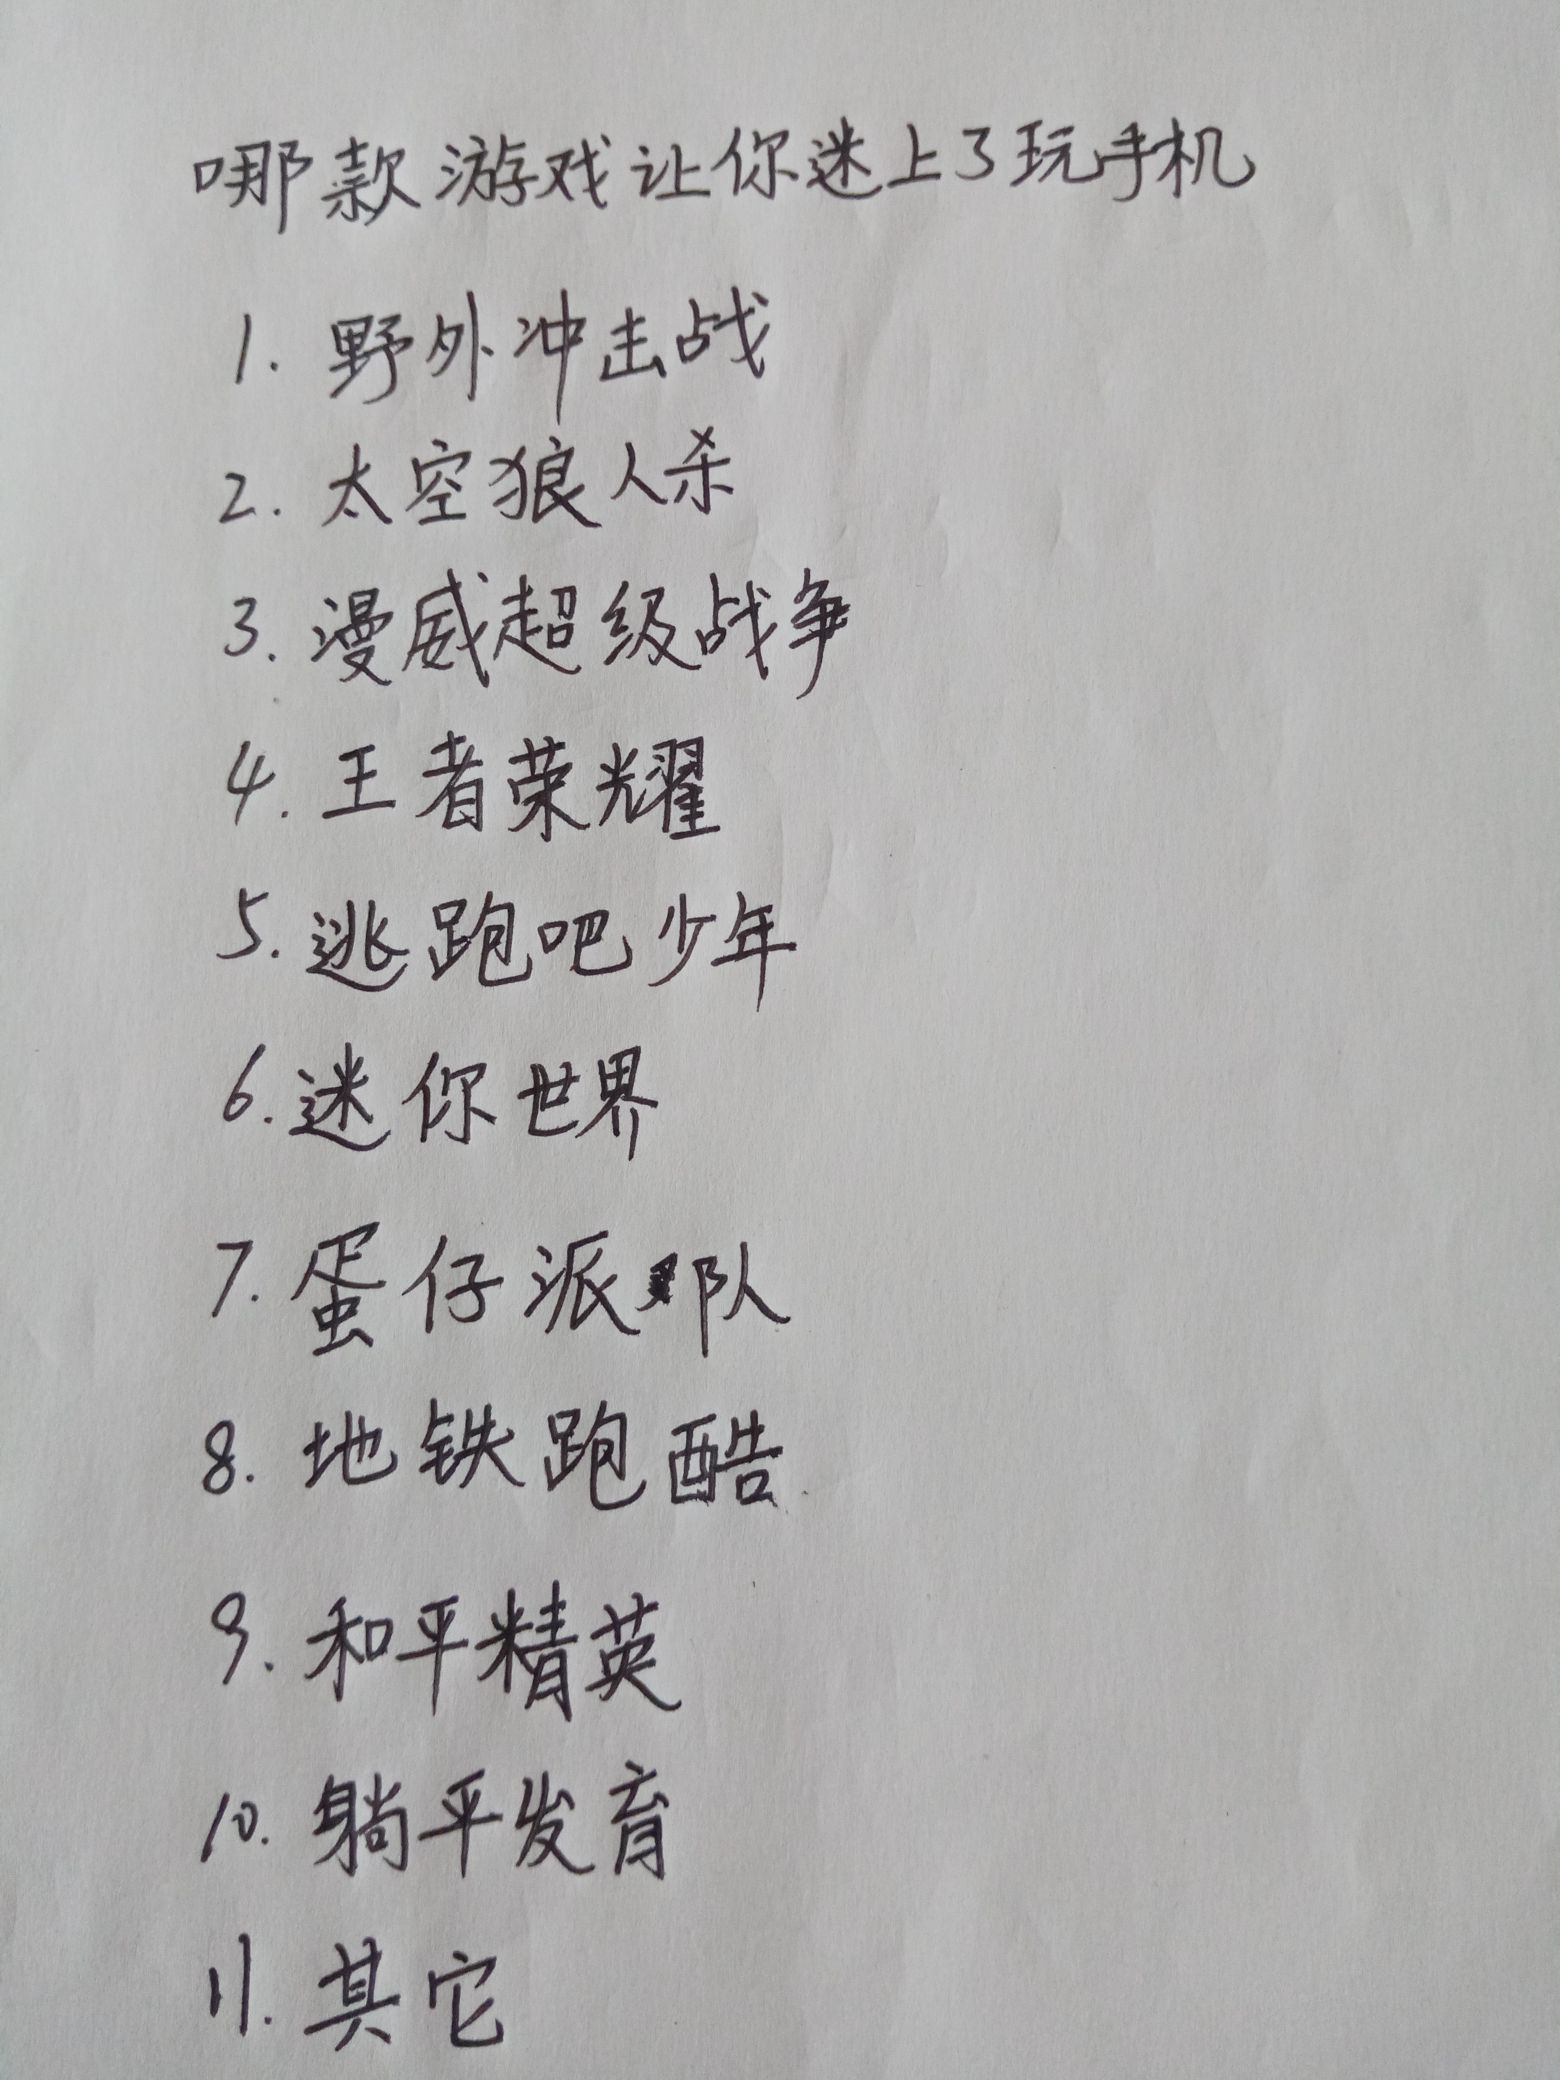 哪款游戏让你迷上了玩手机
1. 野外冲击战
2. 太空狼人杀
3. 漫威超级战争
4. 王者荣耀
5. 逃跑吧少年
6. 迷你世界
7. 蛋仔派队
8. 地铁跑酷
9. 和平精英
10. 躺平发育
11. 其它